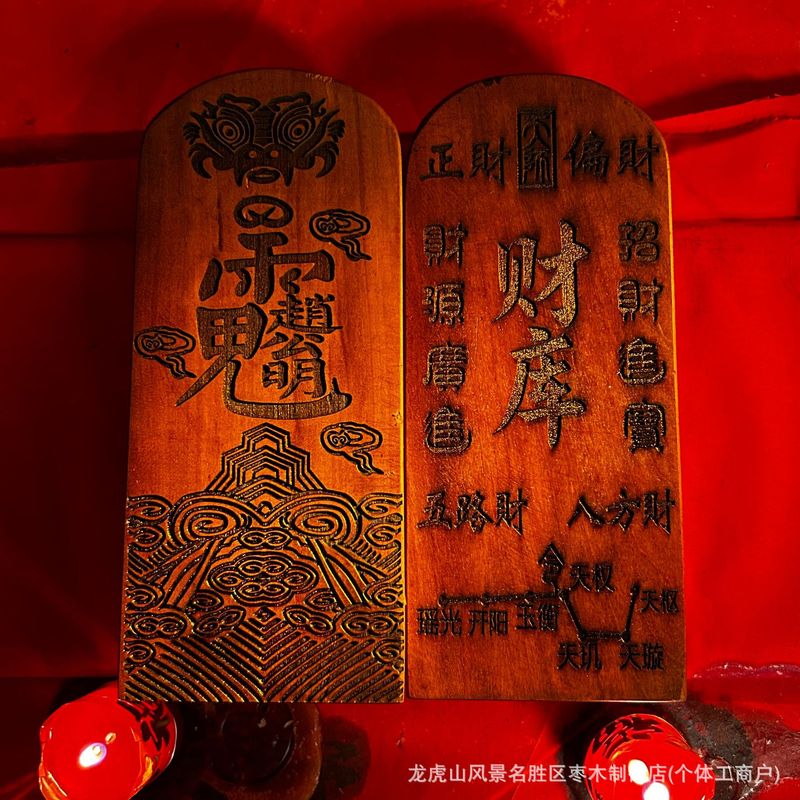 趙公明
正財 偏財
財源廣進
财库
招財進寶
五路財 八方財
天权 天枢
瑶光 开阳 玉衡
天玑 天璇
龙虎山风景名胜区枣木制品店(个体工商户)